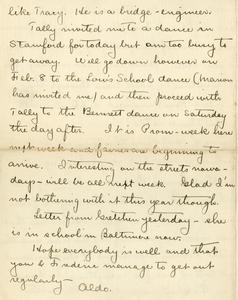 like Tracy. He is a bridge-engineer.
Tally invited me to a dance in
Stamford for today but am too busy to
get away. I'll go down however on
Feb. 8 to the Low School dance (Marion
has invited me) and then proceed with
Tally to the Bennett dance on Saturday
the day after. It is Prom-week here
next week and fairies are beginning to
arrive. Interesting on the streets nowa-
days - will be all next week. Glad I'm
not bothering with it this year though.
Letter from Gretchen yesterday - she
is in school in Baltimore now.
Hope everybody is well and that
you & Frederic manage to get out
regularly - Aldo.